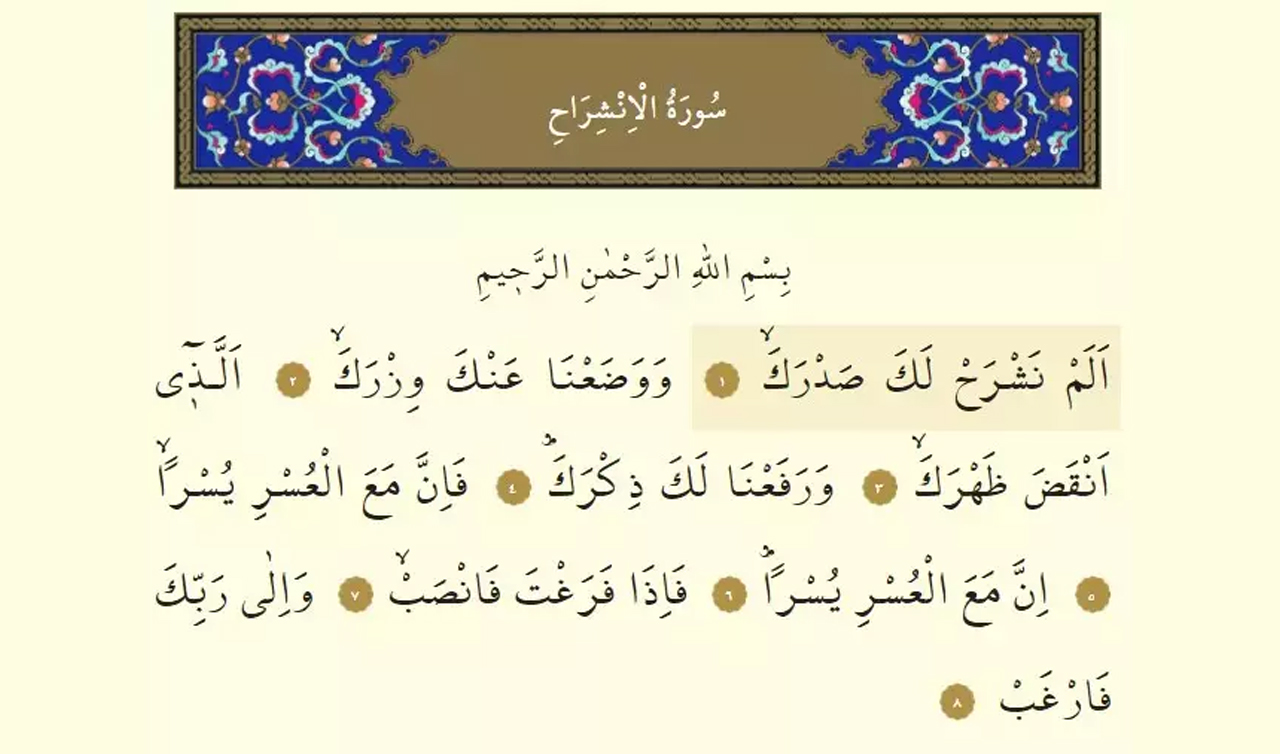 سُورَةُ الْاِنْشِرَاحِ
بِسْمِ اللهِ الرَّحْمٰنِ الرَّح۪يمِ
اَلَمْ نَشْرَحْ لَكَ صَدْرَكَۙ ١ وَوَضَعْنَا عَنْكَ وِزْرَكَۙ ٢ اَلَّـذ۪ٓى
اَنْقَضَ ظَهْرَكَۙ ٣ وَرَفَعْنَا لَكَ ذِكْرَكَۜ ٤ فَاِنَّ مَعَ الْعُسْرِ يُسْراًۙ
٥ اِنَّ مَعَ الْعُسْرِ يُسْراًۜ ٦ فَاِذَا فَرَغْتَ فَانْصَبْۙ ٧ وَاِلٰى رَبِّكَ
فَارْغَبْ ٨